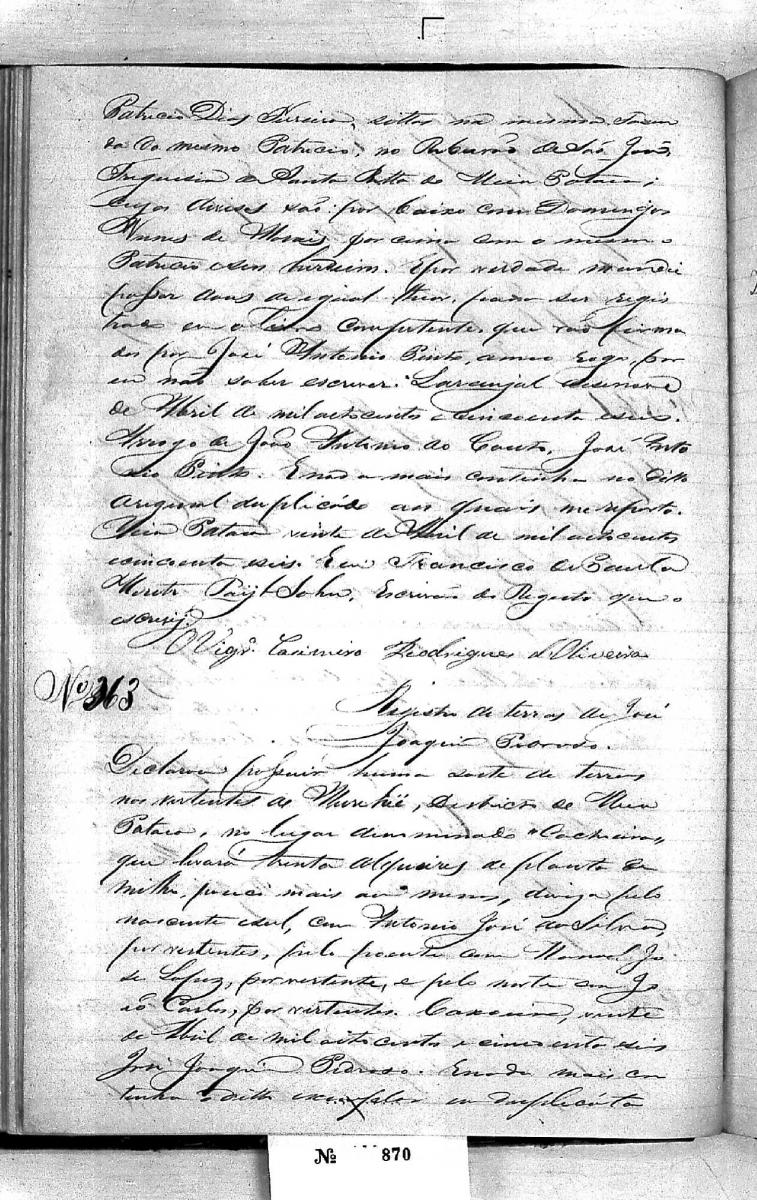 Patricio Dias Ferreira, sittas na mesma Fasen
da do mesmo Patricio, no Ribeirão de São João,
Freguesia de Santa Ritta do Meia Pataca;
cujas divisas são: por baixo com Domingos
Nunes de Morais, por cima com o mesmo
Patricio e seus herdeiros. E por verdade mandei
passar dous de igual theor, para ser regis
trado em o Livro competente, que vão firma
dos por José Antonio Pinto, a meu rogo, por
eu não saber escrever. Laranjal desenove
de Abril de mil oitocentos e cincoenta e seis.
Arrogo de João Antonio do Couto, José Anto
nio Pinto. E nada mais continha no ditto
original duplicado aos quais me reporto.
Meia Pataca vinte de Abril de mil oitocentos
e cincoenta seis. Eu Francisco de Paula
Escrivão do Registo que o
escrevy.
O Vigrº. Casimiro Rodrigues d'Oliveira
Nº 363
Registro de terras de José
Joaquim Pedroso.
Declarou possuir huma sorte de terras
nos vertentes de Murihé, Districto de Meia
Pataca, no lugar denominado "Cachoeira"
que levará trinta alqueires de planta de
milho, pouco mais ou menos, divisa pelo
nascente e sul, com Antonio José da Silva,
por vertentes, pelo poente com Manoel Jo
se Lopes, por vertente, e pelo norte com Jo
ão Carlos, por vertentes. Caxoeira, vinte
de Abril de mil oitocentos e cincoenta seis
José Joaquim Pedroso. E nada mais con
tinha o ditto exemplar em duplicata
Nº 870